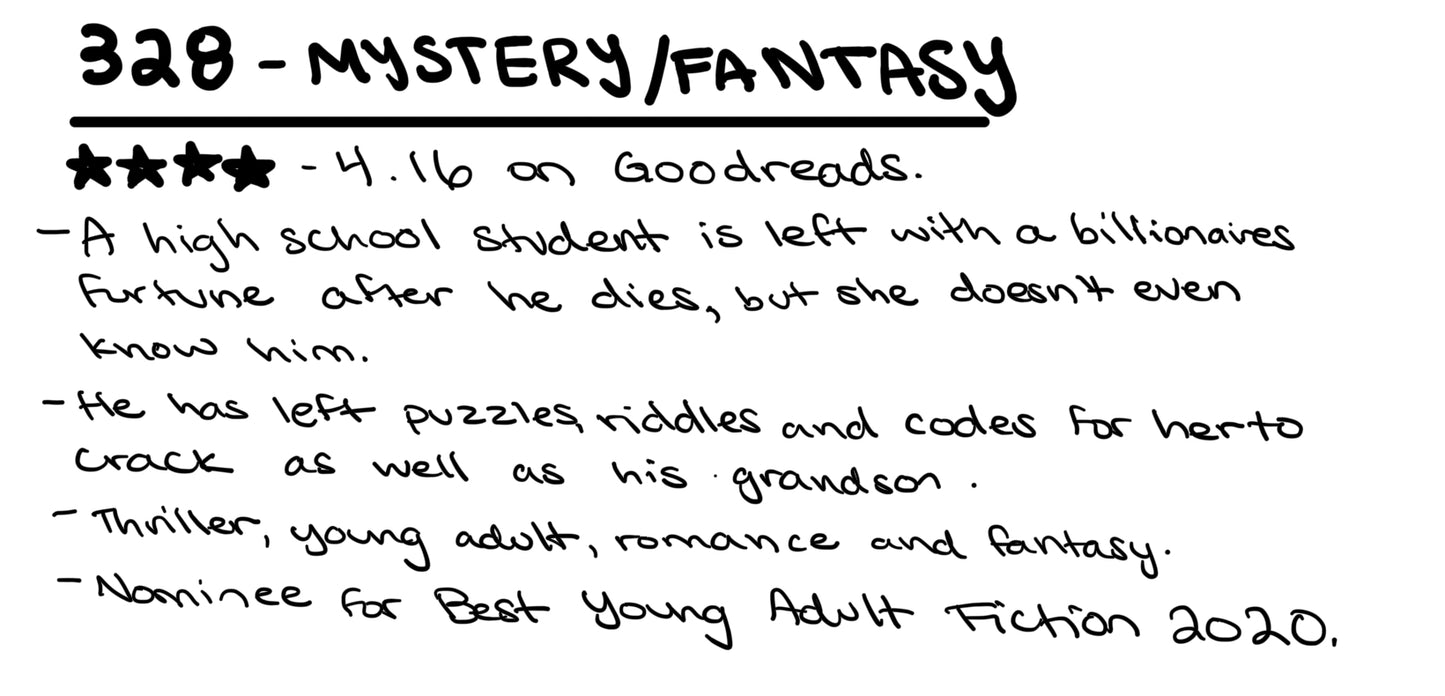 328 - MYSTERY/FANTASY
★★★★ - 4.16 on Goodreads.
- A high school student is left with a billionaires
fortune after he dies, but she doesn't even
know him.
- He has left puzzles, riddles and codes for her to
crack as well as his grandson.
- Thriller, young adult, romance and fantasy.
- Nominee for Best Young Adult Fiction 2020.